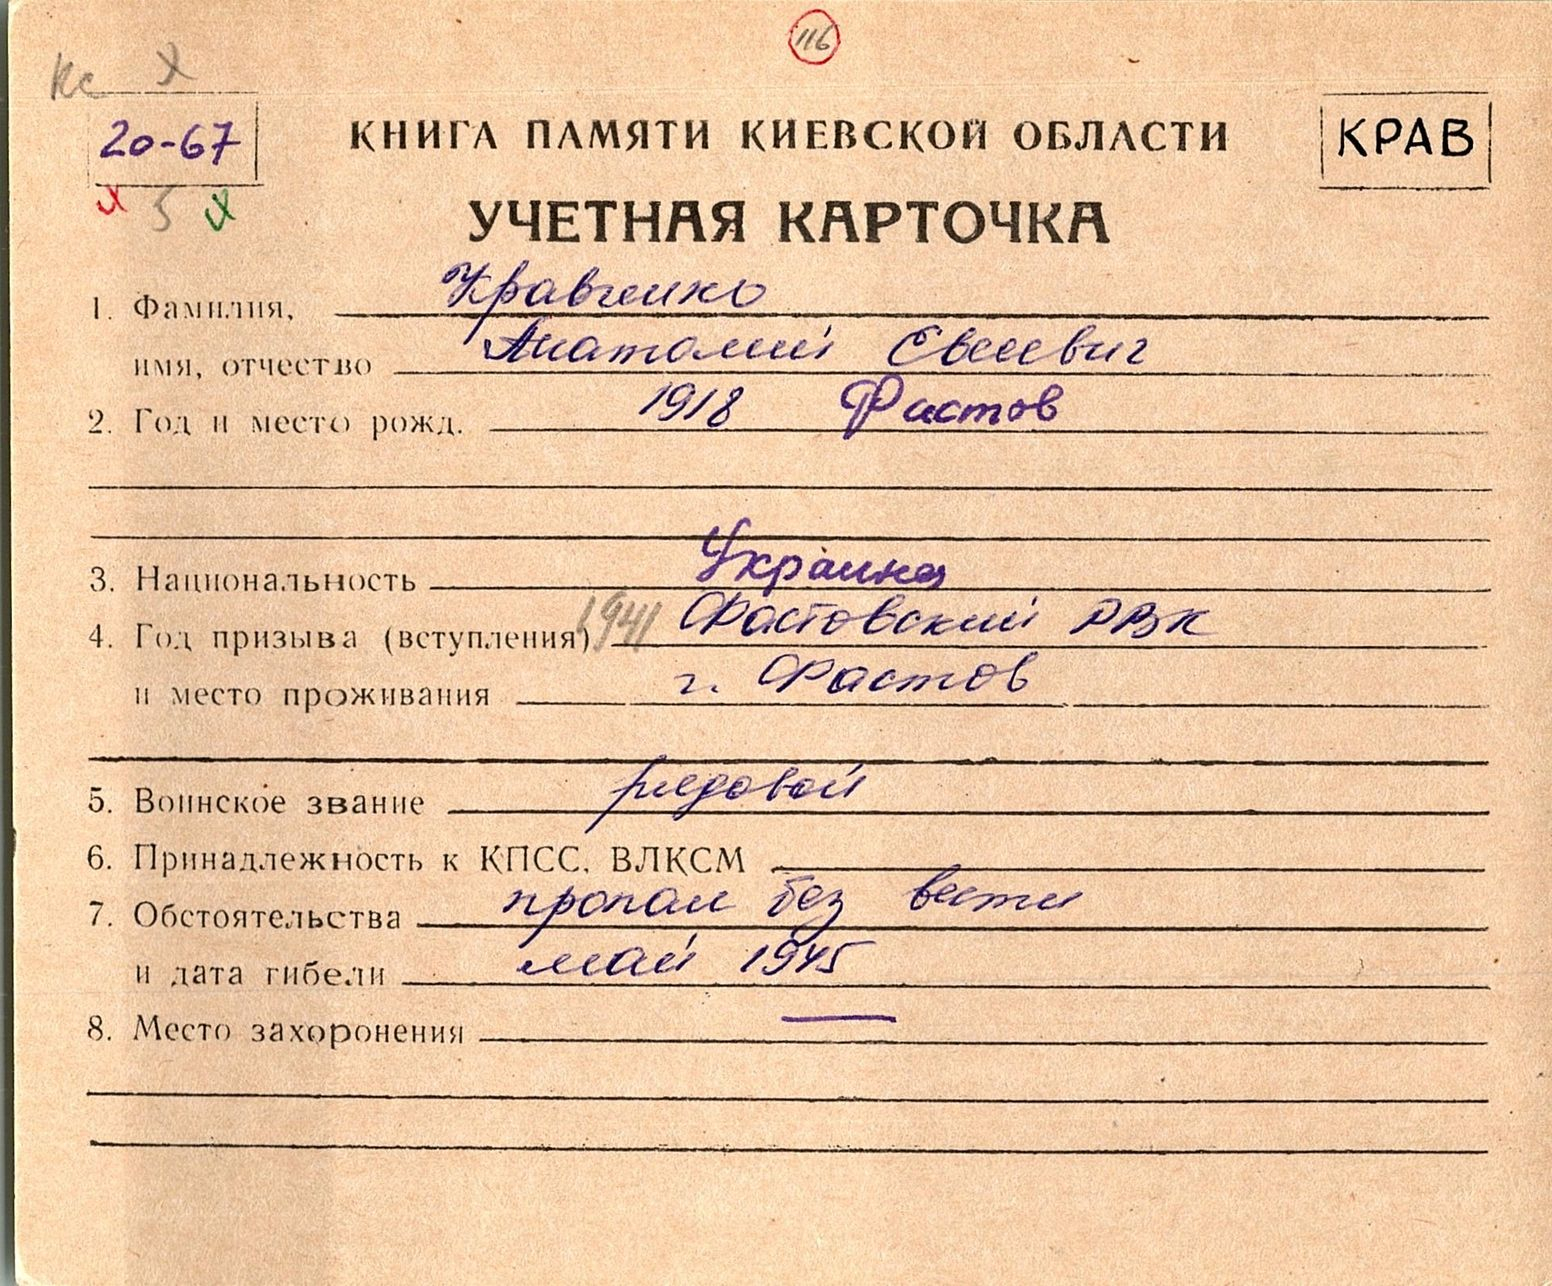 116
Кс
20-67
КНИГА ПАМЯТИ КИЕВСКОЙ ОБЛАСТИ
КРАВ
5
УЧЕТНАЯ КАРТОЧКА
1. Фамилия, Кравченко
имя, отчество Анатолий Евсеевич
2. Год и место рожд. 1918 Фастов
3. Национальность Украинец
4. Год призыва (вступления) 1941 Фастовский РВК
и место проживания г. Фастов
5. Воинское звание рядовой
6. Принадлежность к КПСС, ВЛКСМ
7. Обстоятельства пропал без вести
и дата гибели май 1945
8. Место захоронения —